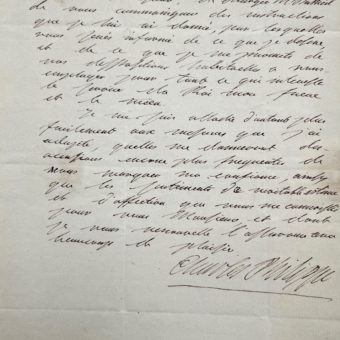 de vous communiquer des instructions
que je lui ai donné, par lesquelles
vous serés informé de ce que je désire
et de ce que je me promets de
vos dispositions habituelles à vous
employer pour tout ce qui intéresse
le service du Roi mon frère
et le mien.
Je me suis attaché d'autant plus
facilement aux mesures que j'ai
adopté, qu'elles me donneront des
occasions encore plus fréquentes de
vous marquer ma confiance, ainsi
que les sentiments de véritable estime
et d'affection que vous me connaissés
pour vous Monsieur, et dont
je vous renouvelle l'assurance avec
beaucoup de plaisir.
Charles Philippe